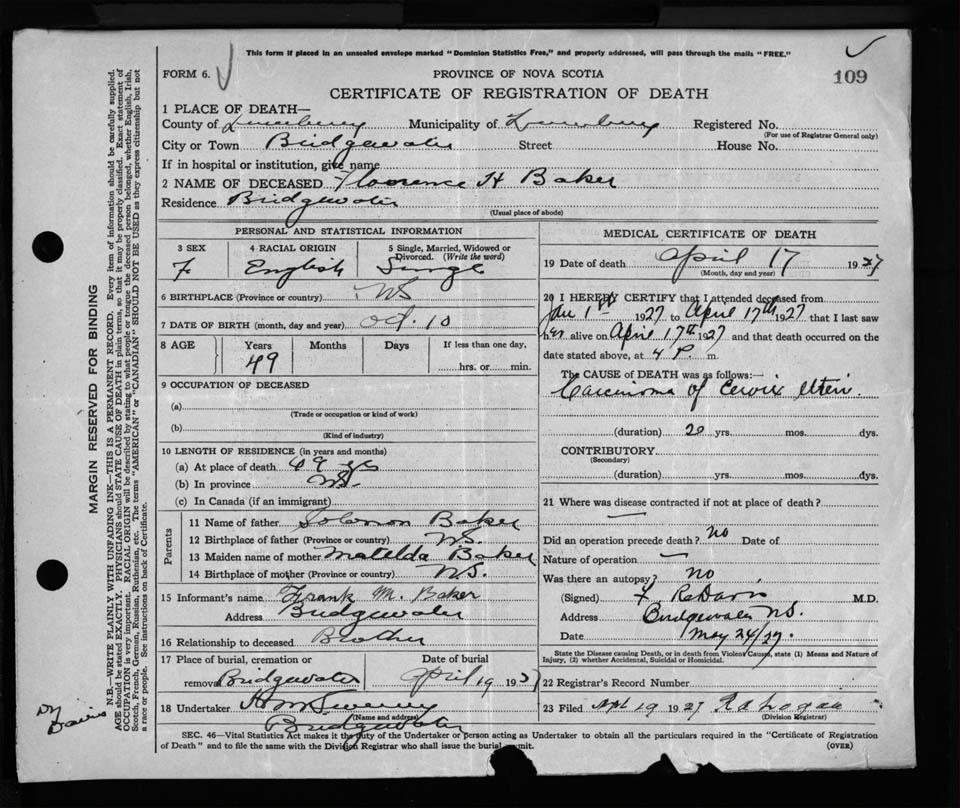 This form if placed in an unsealed envelope marked "Dominion Statistics Free," and properly addressed, will pass through the mails "FREE."
FORM 6.
PROVINCE OF NOVA SCOTIA
109
CERTIFICATE OF REGISTRATION OF DEATH
1 PLACE OF DEATH—
County of Lunenburg Municipality of Lunenburg Registered No.
(For use of Registrar General only)
City or Town Bridgewater Street House No.
If in hospital or institution, give name
2 NAME OF DECEASED Florence H Baker
Residence Bridgewater
(Usual place of abode)
PERSONAL AND STATISTICAL INFORMATION
3 SEX 4 RACIAL ORIGIN 5 Single, Married, Widowed or Divorced. (Write the word)
F English Single
6 BIRTHPLACE (Province or country) NS
7 DATE OF BIRTH (month, day and year) Oct. 10
8 AGE Years Months Days If less than one day,
49 hrs. or min.
9 OCCUPATION OF DECEASED
(a)
(Trade or occupation or kind of work)
(b)
(Kind of industry)
10 LENGTH OF RESIDENCE (in years and months)
(a) At place of death 49 yrs
(b) In province NS.
(c) In Canada (if an immigrant)
Parents
11 Name of father Solomon Baker
12 Birthplace of father (Province or country) NS.
13 Maiden name of mother Matilda Baker
14 Birthplace of mother (Province or country) NS.
15 Informant's name Frank M. Baker
Address Bridgewater
16 Relationship to deceased Brother
17 Place of burial, cremation or removal Bridgewater
Date of burial April 19 1927
18 Undertaker
(Name and address)
Bridgewater
MEDICAL CERTIFICATE OF DEATH
19 Date of death April 17 1927
(Month, day and year)
20 I HEREBY CERTIFY that I attended deceased from
1st 1927 to April 17th 1927 that I last saw
her alive on April 17th 1927 and that death occurred on the
date stated above, at 4 P. m.
The CAUSE of DEATH was as follows:—
Carcinoma of Cervix Uteri.
(duration) 20 yrs. mos. dys.
CONTRIBUTORY
(Secondary)
(duration) yrs. mos. dys.
21 Where was disease contracted if not at place of death?
Did an operation precede death? no Date of
Nature of operation
Was there an autopsy? no
(Signed) F R Davis M.D.
Address Bridgewater N.S.
Date May 24/27.
State the Disease causing Death, or in death from Violent Causes, state (1) Means and Nature of
Injury, (2) whether Accidental, Suicidal or Homicidal.
22 Registrar's Record Number
23 Filed Apl 19 1927
(Division Registrar)
SEC. 46—Vital Statistics Act makes it the duty of the Undertaker or person acting as Undertaker to obtain all the particulars required in the "Certificate of Registration
of Death" and to file the same with the Division Registrar who shall issue the burial permit.
(OVER)
MARGIN RESERVED FOR BINDING
N.B.—WRITE PLAINLY WITH UNFADING INK—THIS IS A PERMANENT RECORD. Every item of information should be carefully supplied.
AGE should be stated EXACTLY. PHYSICIANS should STATE CAUSE OF DEATH in plain terms, so that it may be properly classified. Exact statement of
OCCUPATION is very important. RACIAL ORIGIN will be described by stating to what people or tongue the deceased person belonged, whether English, Irish,
Scotch, French, German, Russian, Ruthenian, etc. The terms "AMERICAN" or "CANADIAN" SHOULD NOT BE USED as they express citizenship but not
a race or people. See instructions on back of Certificate.
Dr Davis